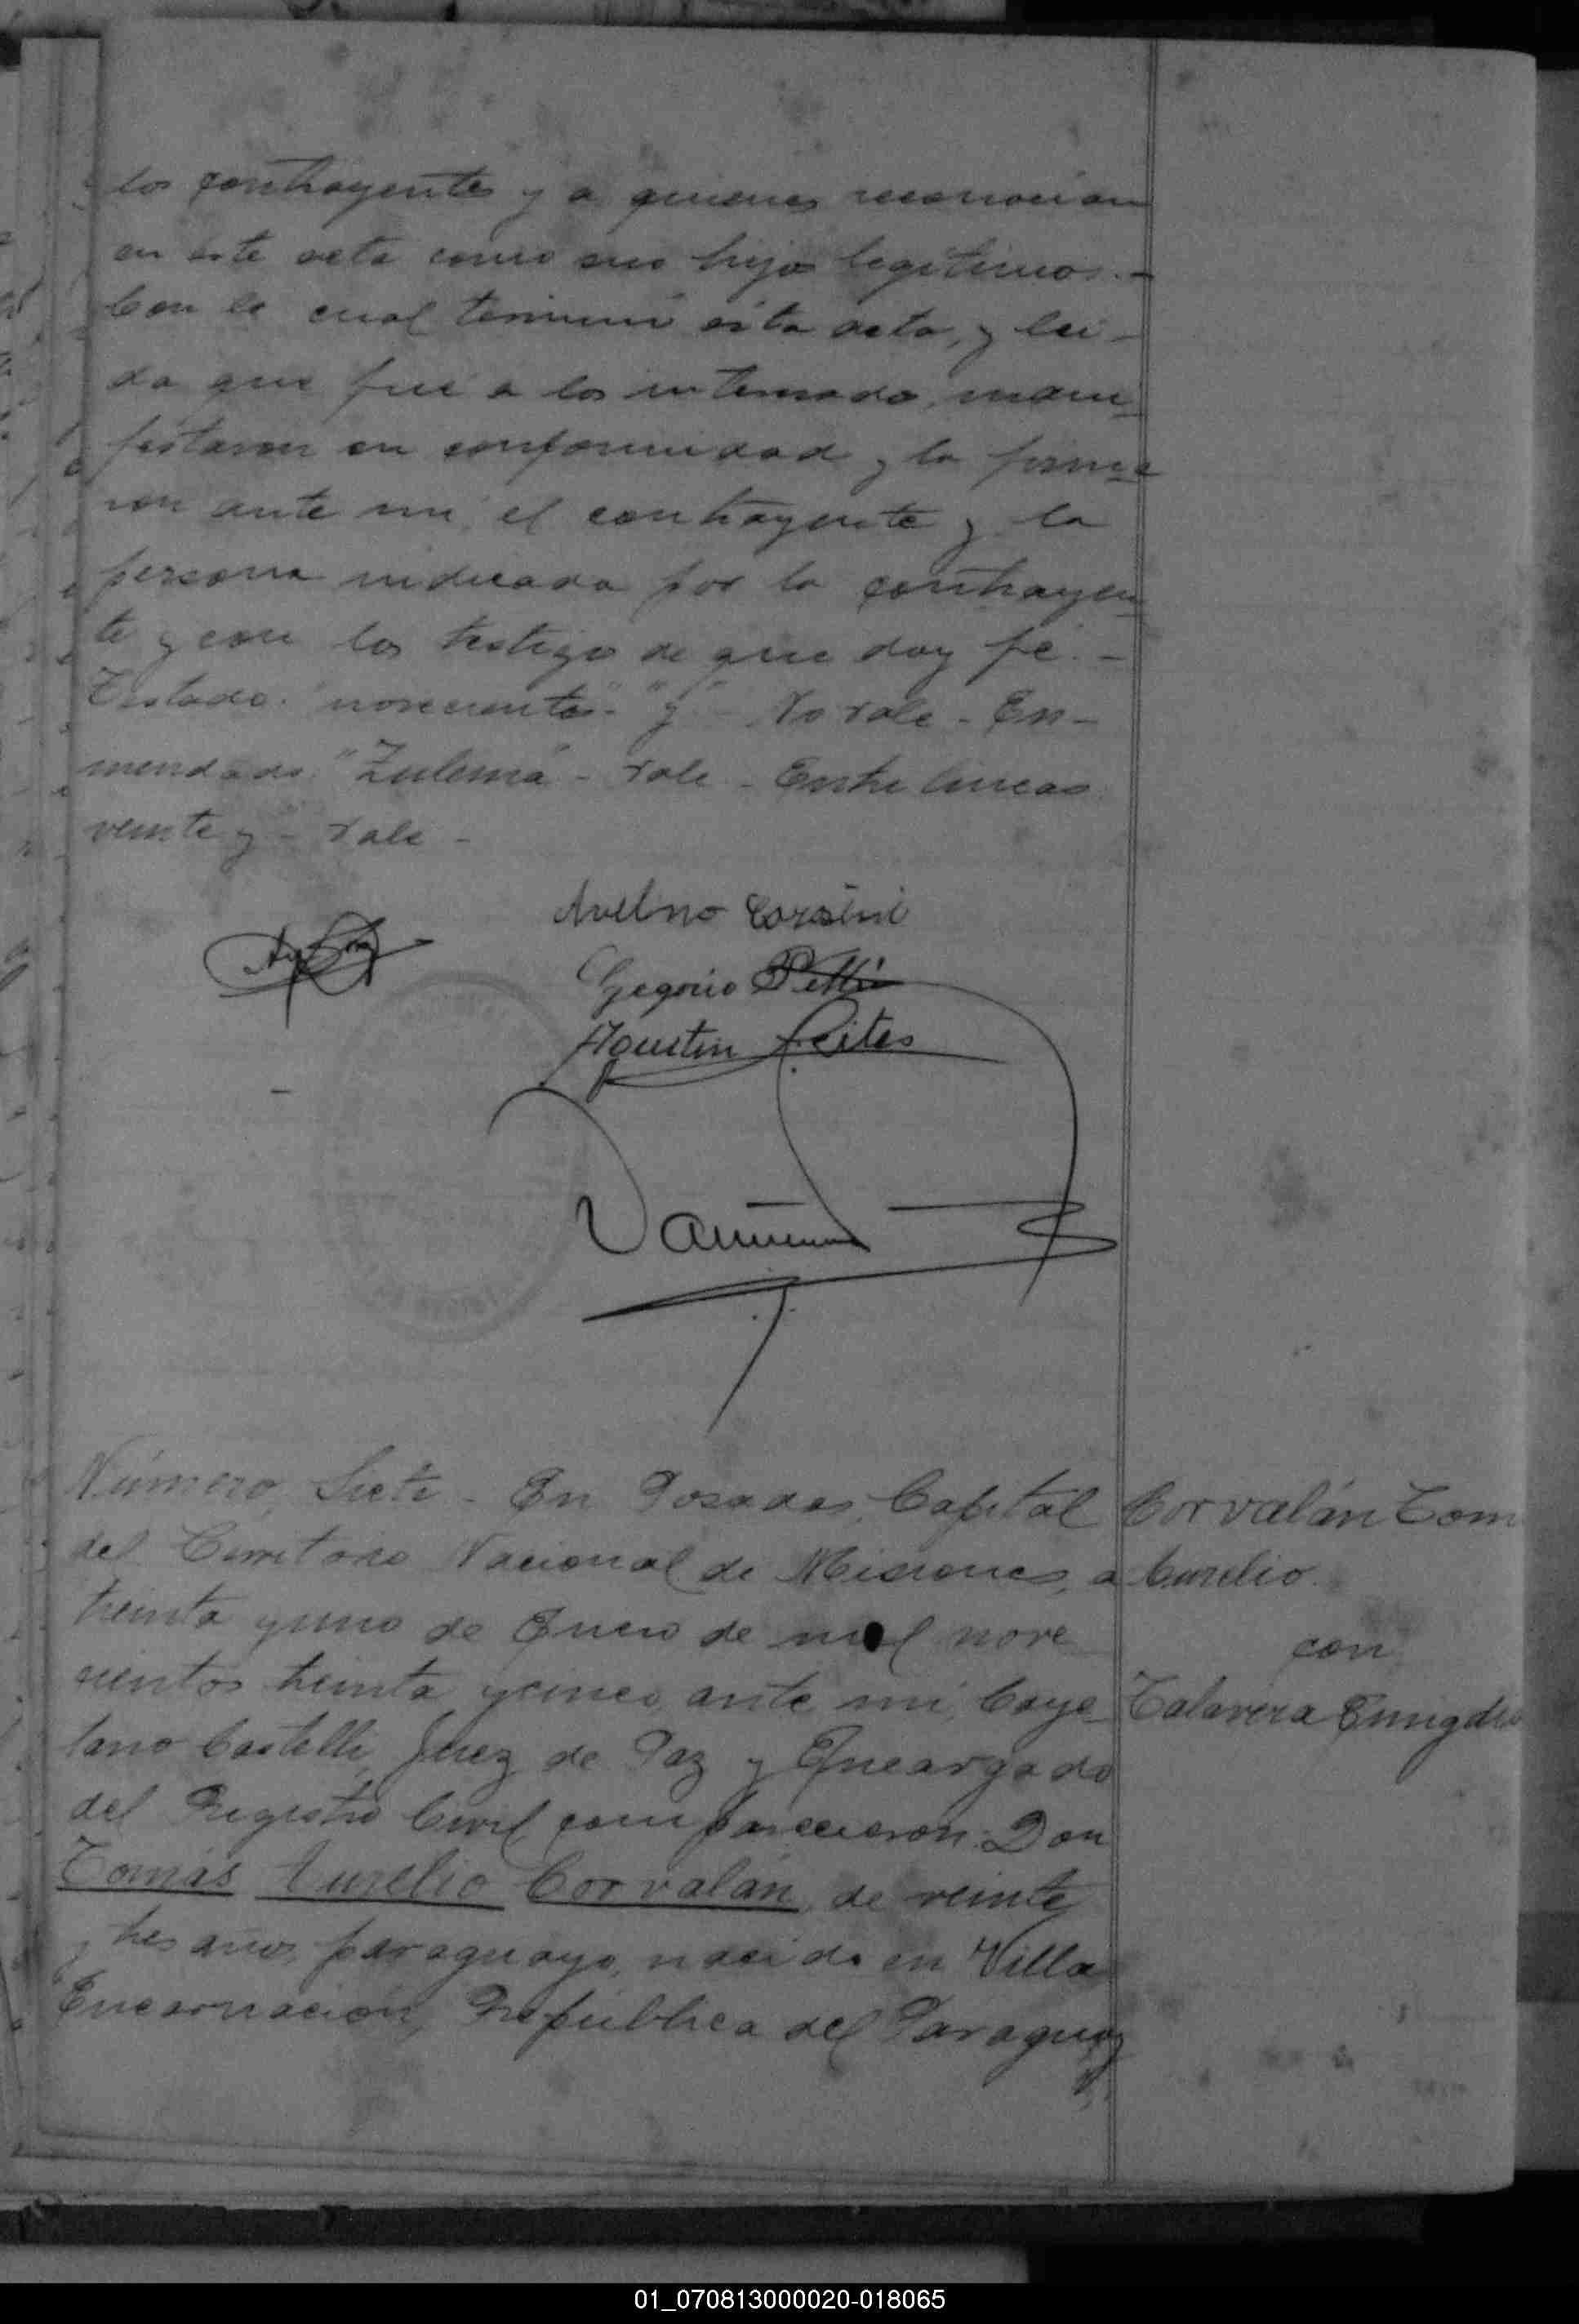 los contrayentes y a quienes reconocían
en este acto como sus hijos legítimos.-
Con lo cual terminó ésta acta, y leí-
da que fué a los interesados, mani-
festaron su conformidad y la firma
ron ante mí, el contrayente y la
persona indicada por la contrayen-
te y con los testigos de que doy fé.-
Testado: "novecientos" - "y" - No vale - En-
mendado: "Zulema" - Vale - Entre líneas
veinte y - Vale -
Avelino Corsini
Gregorio
Agustin Leites
Número Siete - En Posadas, Capital
del Territorio Nacional de Misiones, a
treinta y uno de Enero de mil nove
cientos treinta y cinco, ante mí, Caye-
tano Castelli, Juez de Paz y Encargado
del Registro Civil comparecieron: Don
Tomás Aurelio Corvalán, de veinte
y tres años, paraguayo, nacido en Villa
Encarnación, República del Paraguay
Corvalán Tom
Aurelio
con
Talavera
01_070813000020-018065